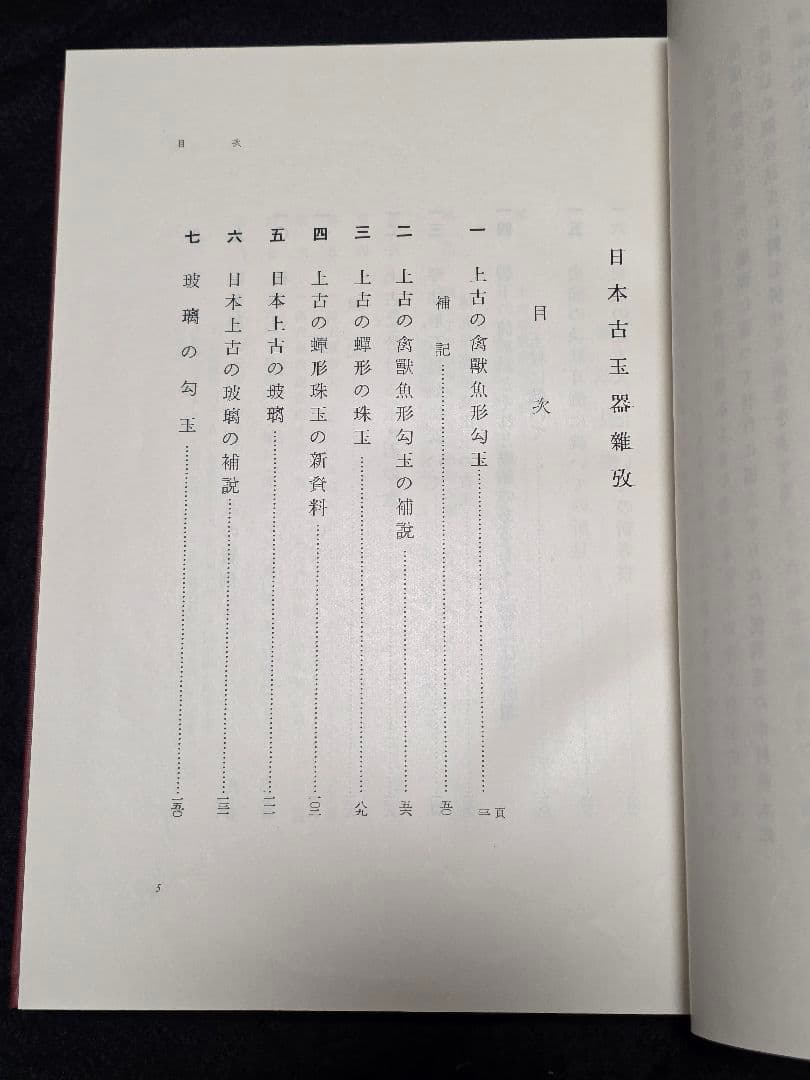 日本古玉器雜攷
目次
頁
一 上古の禽獸魚形勾玉…………三
補記…………五〇
二 上古の禽獸魚形勾玉の補說…………五六
三 上古の蟬形の珠玉…………八九
四 上古の蟬形珠玉の新資料…………一〇二
五 日本上古の玻璃…………一一一
六 日本上古の玻璃の補說…………一三一
七 玻璃の勾玉…………一五〇
目次
5